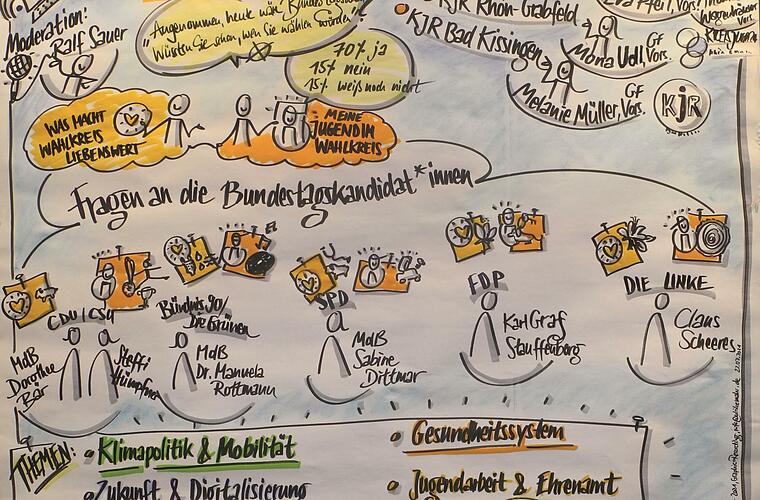 Moderation:
Ralf Sauer
„Angenommen, heute wär' Bundestagswahl
Wüssten Sie schon, wen Sie wählen würden?"
70% ja
15% nein
15% weiß noch nicht
KJR Rhön-Grabfeld
KJR Bad Kissingen
Eva Pfeil, Vors.
GF
Mona Udl, Vors.
GF
Melanie Müller, Vors.
KJR
WAS MACHT
WAHLKREIS
LIEBENSWERT
MEINE
JUGEND IM
WAHLKREIS
Fragen an die Bundestagskandidat*innen
CDU/CSU
MdB
Dorothee
Bär
Steffi
Hümpfner
Bündnis 90/
Die Grünen
MdB
Dr. Manuela
Rottmann
SPD
MdB
Sabine
Dittmar
FDP
Karl Graf
Stauffenberg
DIE LINKE
Claus
Scheeres
THEMEN:
Klimapolitik & Mobilität
Zukunft & Digitalisierung
Gesundheitssystem
Jugendarbeit & Ehrenamt